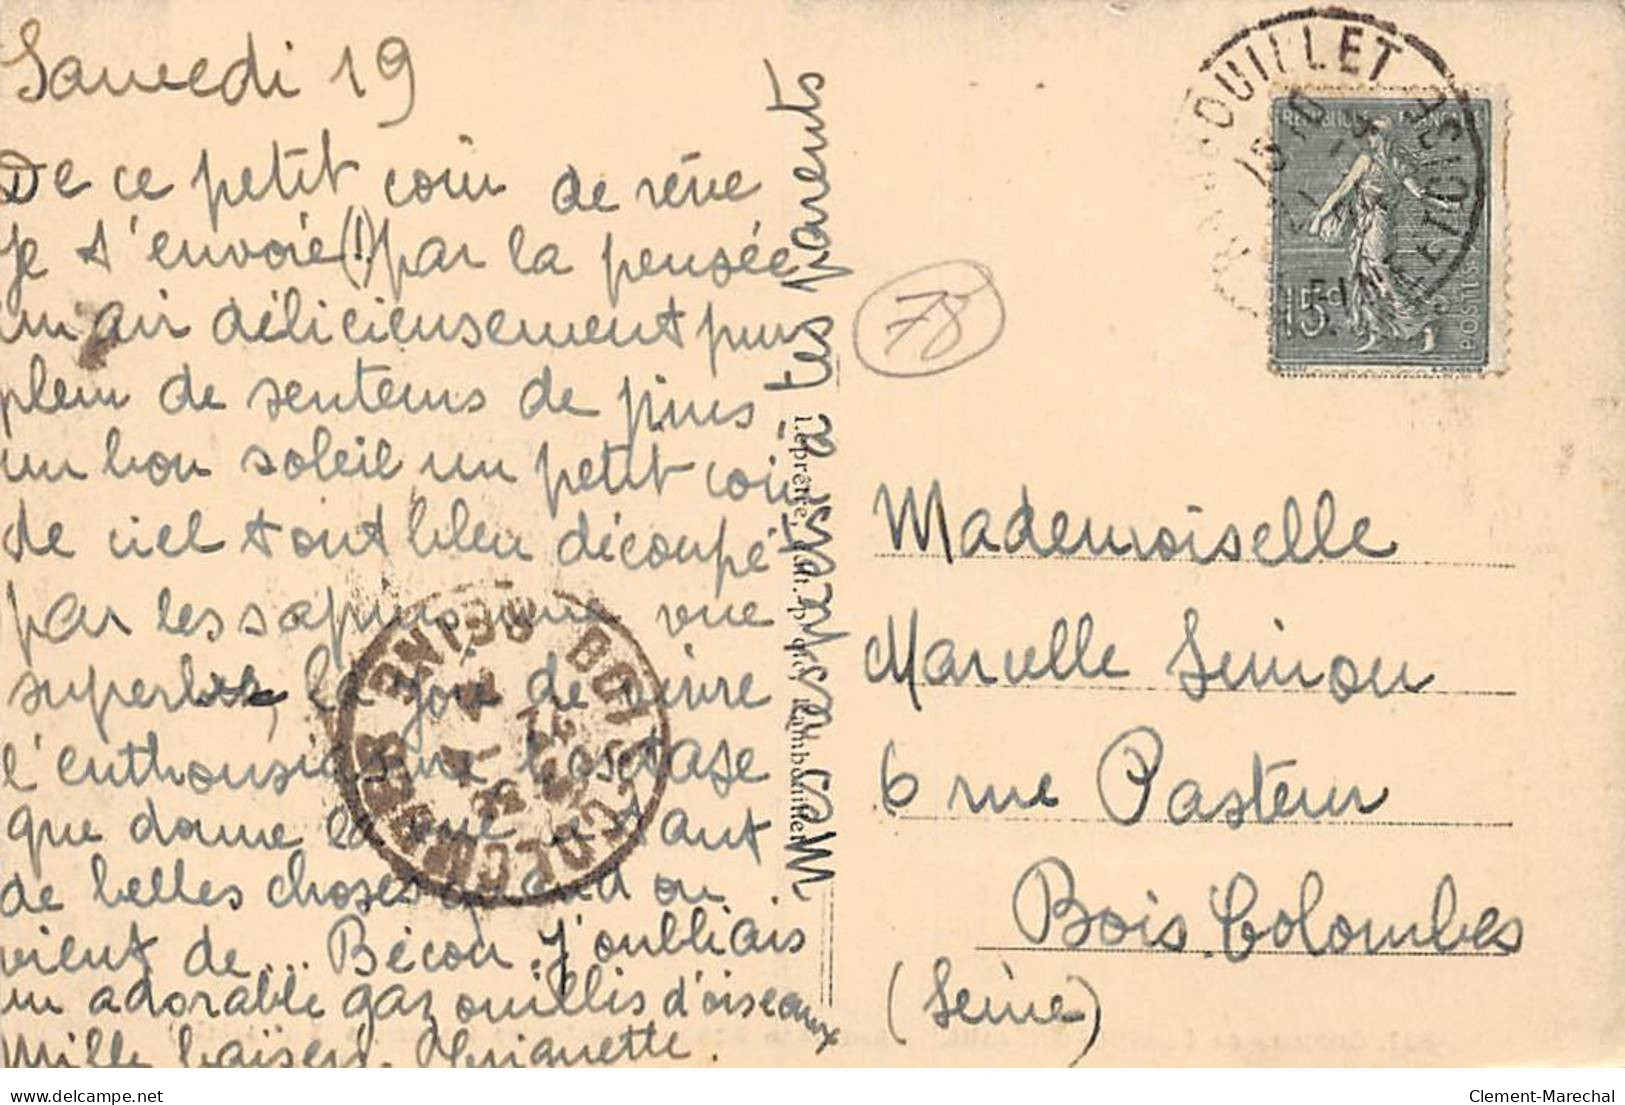 Samedi 19
De ce petit coin de rêve
je t'envoie (!) par la pensée
un air délicieusement pur
plein de senteurs de pins
un bon soleil un petit coin
de ciel tout bleu découpé
par les sapins une vue
superbe, la joie de vivre
l'enthousiasme l'extase
que donne la vue de tant
de belles choses quand on
vient de... Bécon. J'oubliais
un adorable gazouillis d'oiseaux
Mille baisers. Huguette.
Mes respects à tes parents
Leprêtre, édit.
Rambouillet
78
REPUBLIQUE FRANÇAISE
15c
POSTES
RAMBOUILLET
SEINE ET OISE
BOIS-COLOMBES
SEINE
Mademoiselle
Marcelle Simon
6 rue Pasteur
Bois Colombes
(Seine)
Clement-Marechal